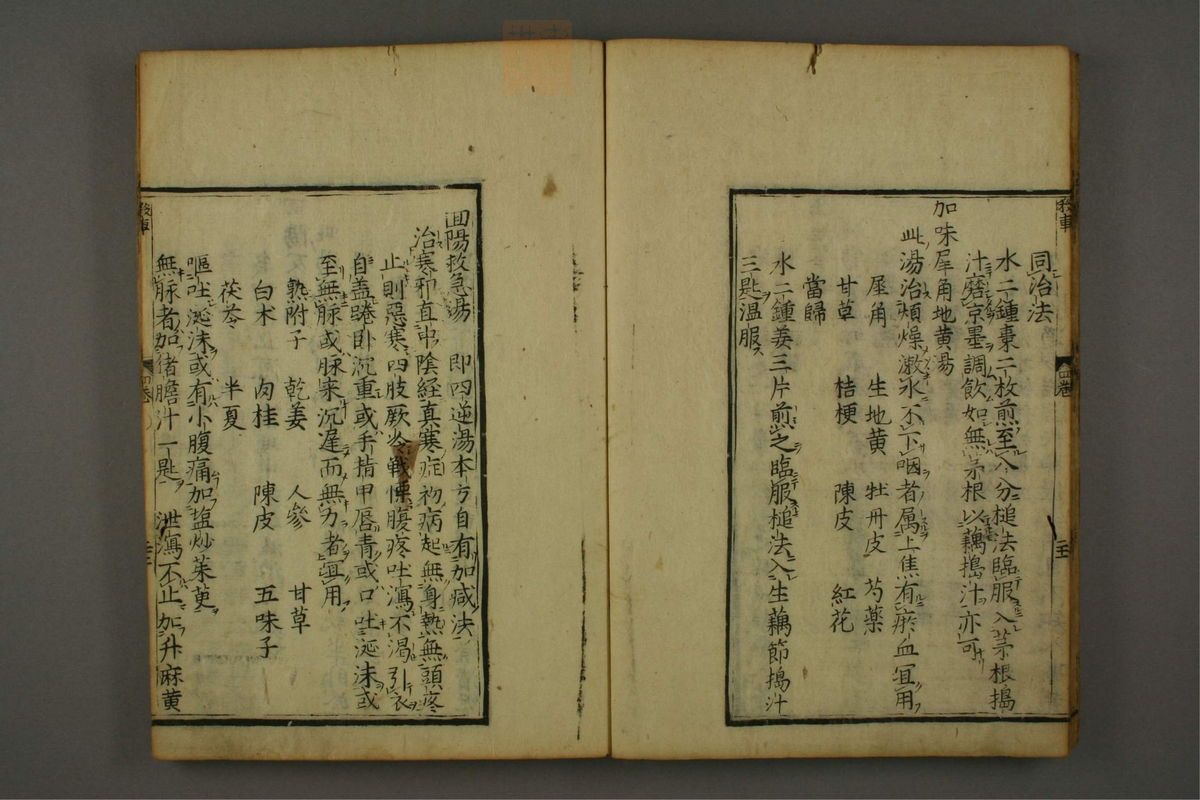 同治法
水二鍾棗二枚煎至八分槌法臨服入茅根搗
汁磨京墨調飲如無茅根以藕搗汁亦可
加味犀角地黄湯
此湯治煩燥漱水不下咽者属上焦有瘀血宜用
犀角　生地黄　牡丹皮　芍薬
甘草　桔梗　陳皮　紅花
當歸
水二鍾姜三片煎之臨服槌法入生藕節搗汁
三匙温服
四巻
回陽救急湯　即四逆湯本方自有加减法
治寒邪直中陰経真寒症初病起無身熱無頭疼
止則惡寒四肢厥冷戦慄腹疼吐瀉不渇引衣
自盖踡卧沉重或手指甲唇青或口吐涎沫或
至無脉或脉来沉遅而無力者宜用
熟附子　乾姜　人參　甘草
白术　肉桂　陳皮　五味子
茯苓　半夏
嘔吐涎沫或有小腹痛加塩炒茱萸
無脉者加猪膽汁一匙　泄瀉不止加升麻黄
四巻